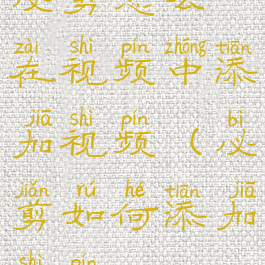 zài shì pín zhōng tiān
在视频中添
jiā shì pín bì
加视频（必
jiǎn rú hé tiān jiā
剪如何添加
shì pín